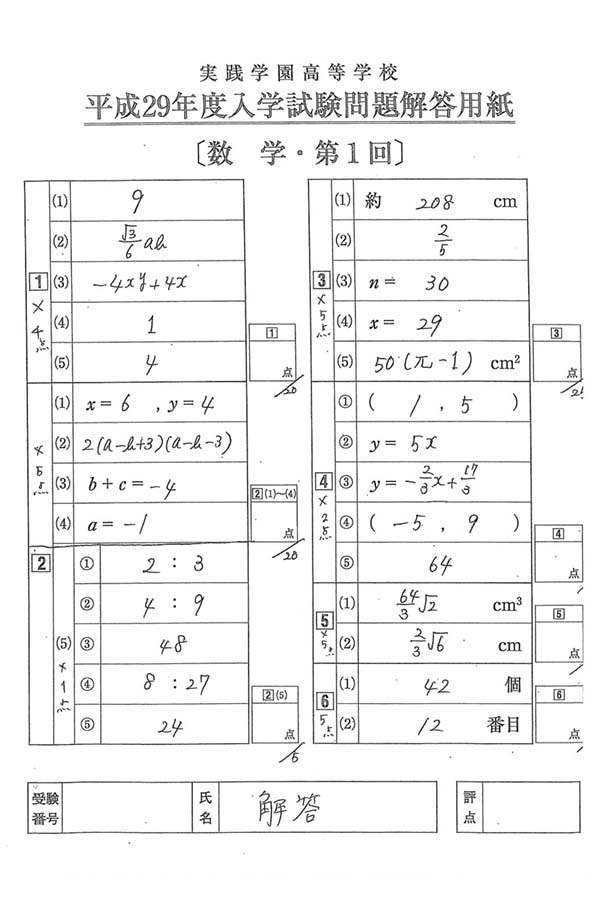 実践学園高等学校
平成29年度入学試験問題解答用紙
〔数 学・第1回〕
1
×4点
(1) 9
(2) √3/6 ab
(3) −4xy+4x
(4) 1
(5) 4
1 点
/20
2
×5点
(1) x = 6 , y = 4
(2) 2(a−b+3)(a−b−3)
(3) b + c = −4
(4) a = −1
2(1)〜(4) 点
/20
(5)
×1点
① 2 : 3
② 4 : 9
③ 48
④ 8 : 27
⑤ 24
2(5) 点
/5
3
×5点
(1) 約 208 cm
(2) 2/5
(3) n = 30
(4) x = 29
(5) 50(π−1) cm²
3 点
4
×2点
① ( 1 , 5 )
② y = 5x
③ y = −2/3 x + 17/3
④ ( −5 , 9 )
⑤ 64
4 点
5
×5点
(1) 64/3 √2 cm³
(2) 2/3 √6 cm
5 点
6
5点
(1) 42 個
(2) 12 番目
6 点
受験番号
氏名 解答
評点